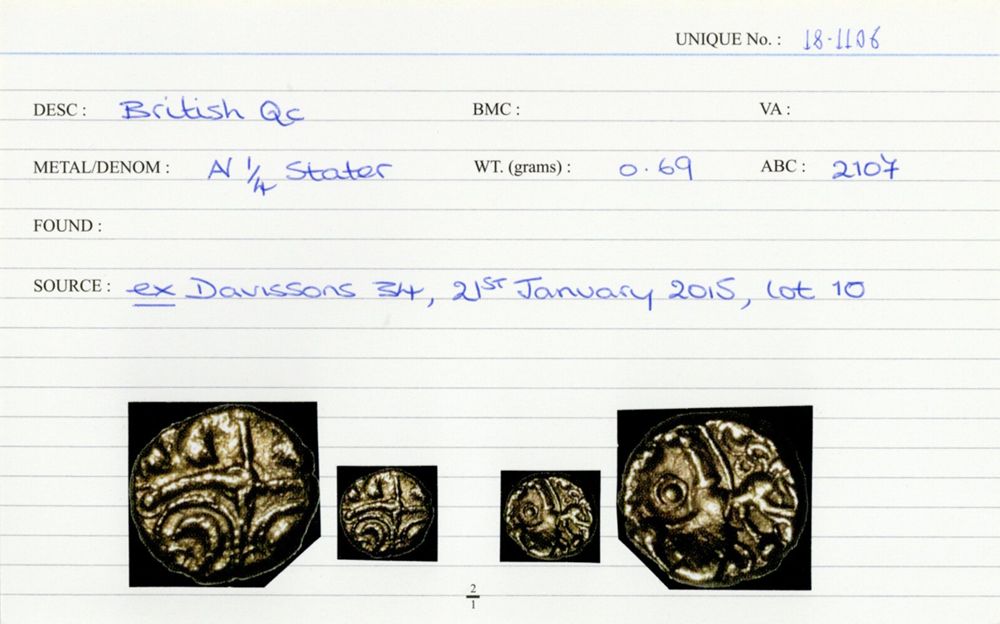 UNIQUE No. : 18-1106
DESC : British Qc BMC : VA :
METAL/DENOM : AV 1/4 Stater WT. (grams) : 0.69 ABC : 2107
FOUND :
SOURCE : ex Davissons 34, 21ST January 2015, lot 10
2
1